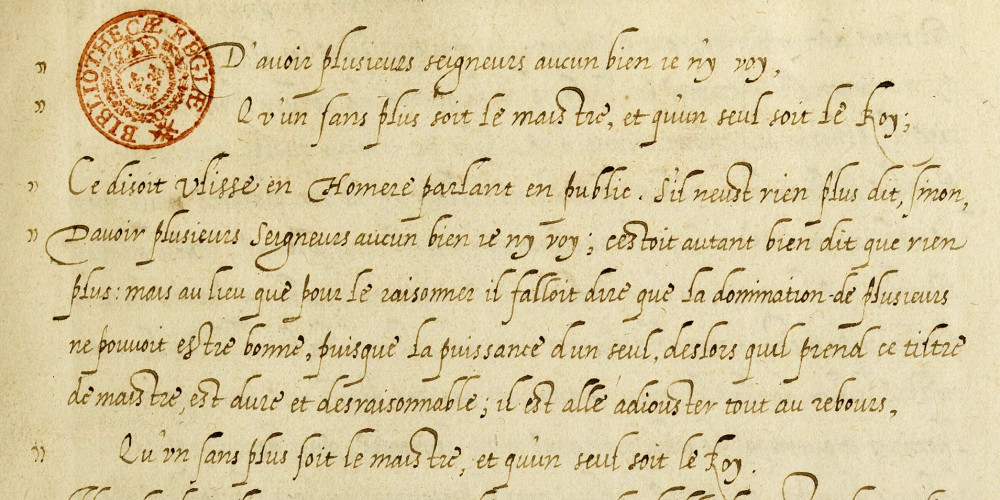 BIBLIOTHECÆ REGIÆ
" D'avoir plusieurs seigneurs aucun bien ie n'y voy,
" Qu'un sans plus soit le maistre, et qu'un seul soit le Roy;
" Ce disoit Ulisse en Homere parlant en public. S'il neust rien plus dit, sinon,
" Davoir plusieurs Seigneurs aucun bien ie ny voy; cestoit autant bien dit que rien
plus: mais au lieu que pour le raisonner il falloit dire que la domination de plusieurs
ne pouvoit estre bonne, puisque la puissance d'un seul, deslors quil prend ce tiltre
de maistre, est dure et desraisonnable; il est allé adiouster tout au rebours,
" Qu'vn sans plus soit le maistre, et qu'un seul soit le Roy.